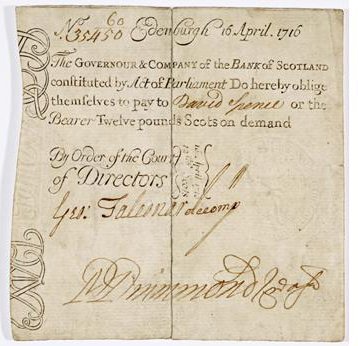 No 35450 60 Edenburgh 16 April. 1716
The Governour & Company of the Bank of Scotland
constituted by Act of Parliament Do hereby oblige
themselves to pay to David Spence or the
Bearer Twelve pounds Scots on demand
By Order of the Court
of Directors
Drummond